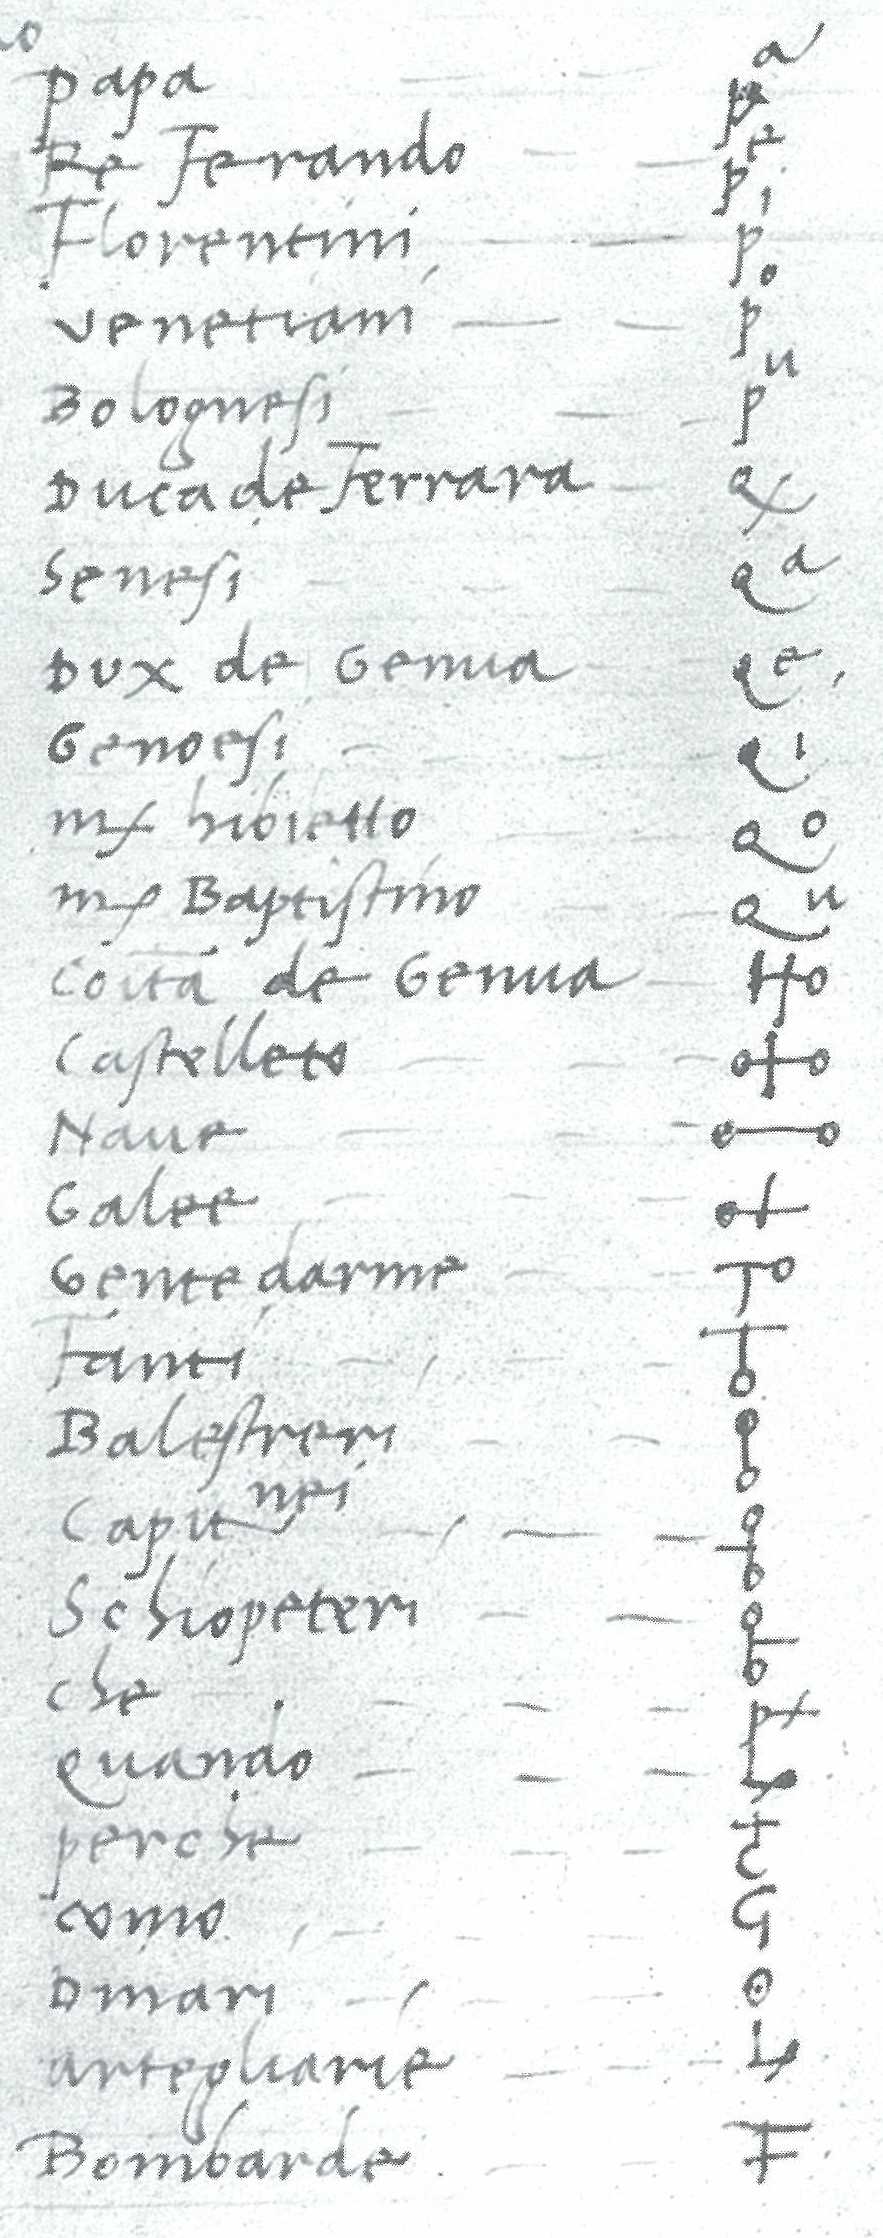 papa pa
Re Ferando pe
Florentini pi
Venetiani po
Bolognesi pu
Duca de Ferrara
Senesi qa
Dux de Genua qe
Genoesi qi
mſ hibietto qo
mſ Baptiſtino qu
Coītā de Genua
Caſtelleto
Naue
Galee
Gente darme
Fanti
Baleſtreri
Capitnei
Schiopeteri
che
quando
perche
como
Dinari
artegliarie
Bombarde